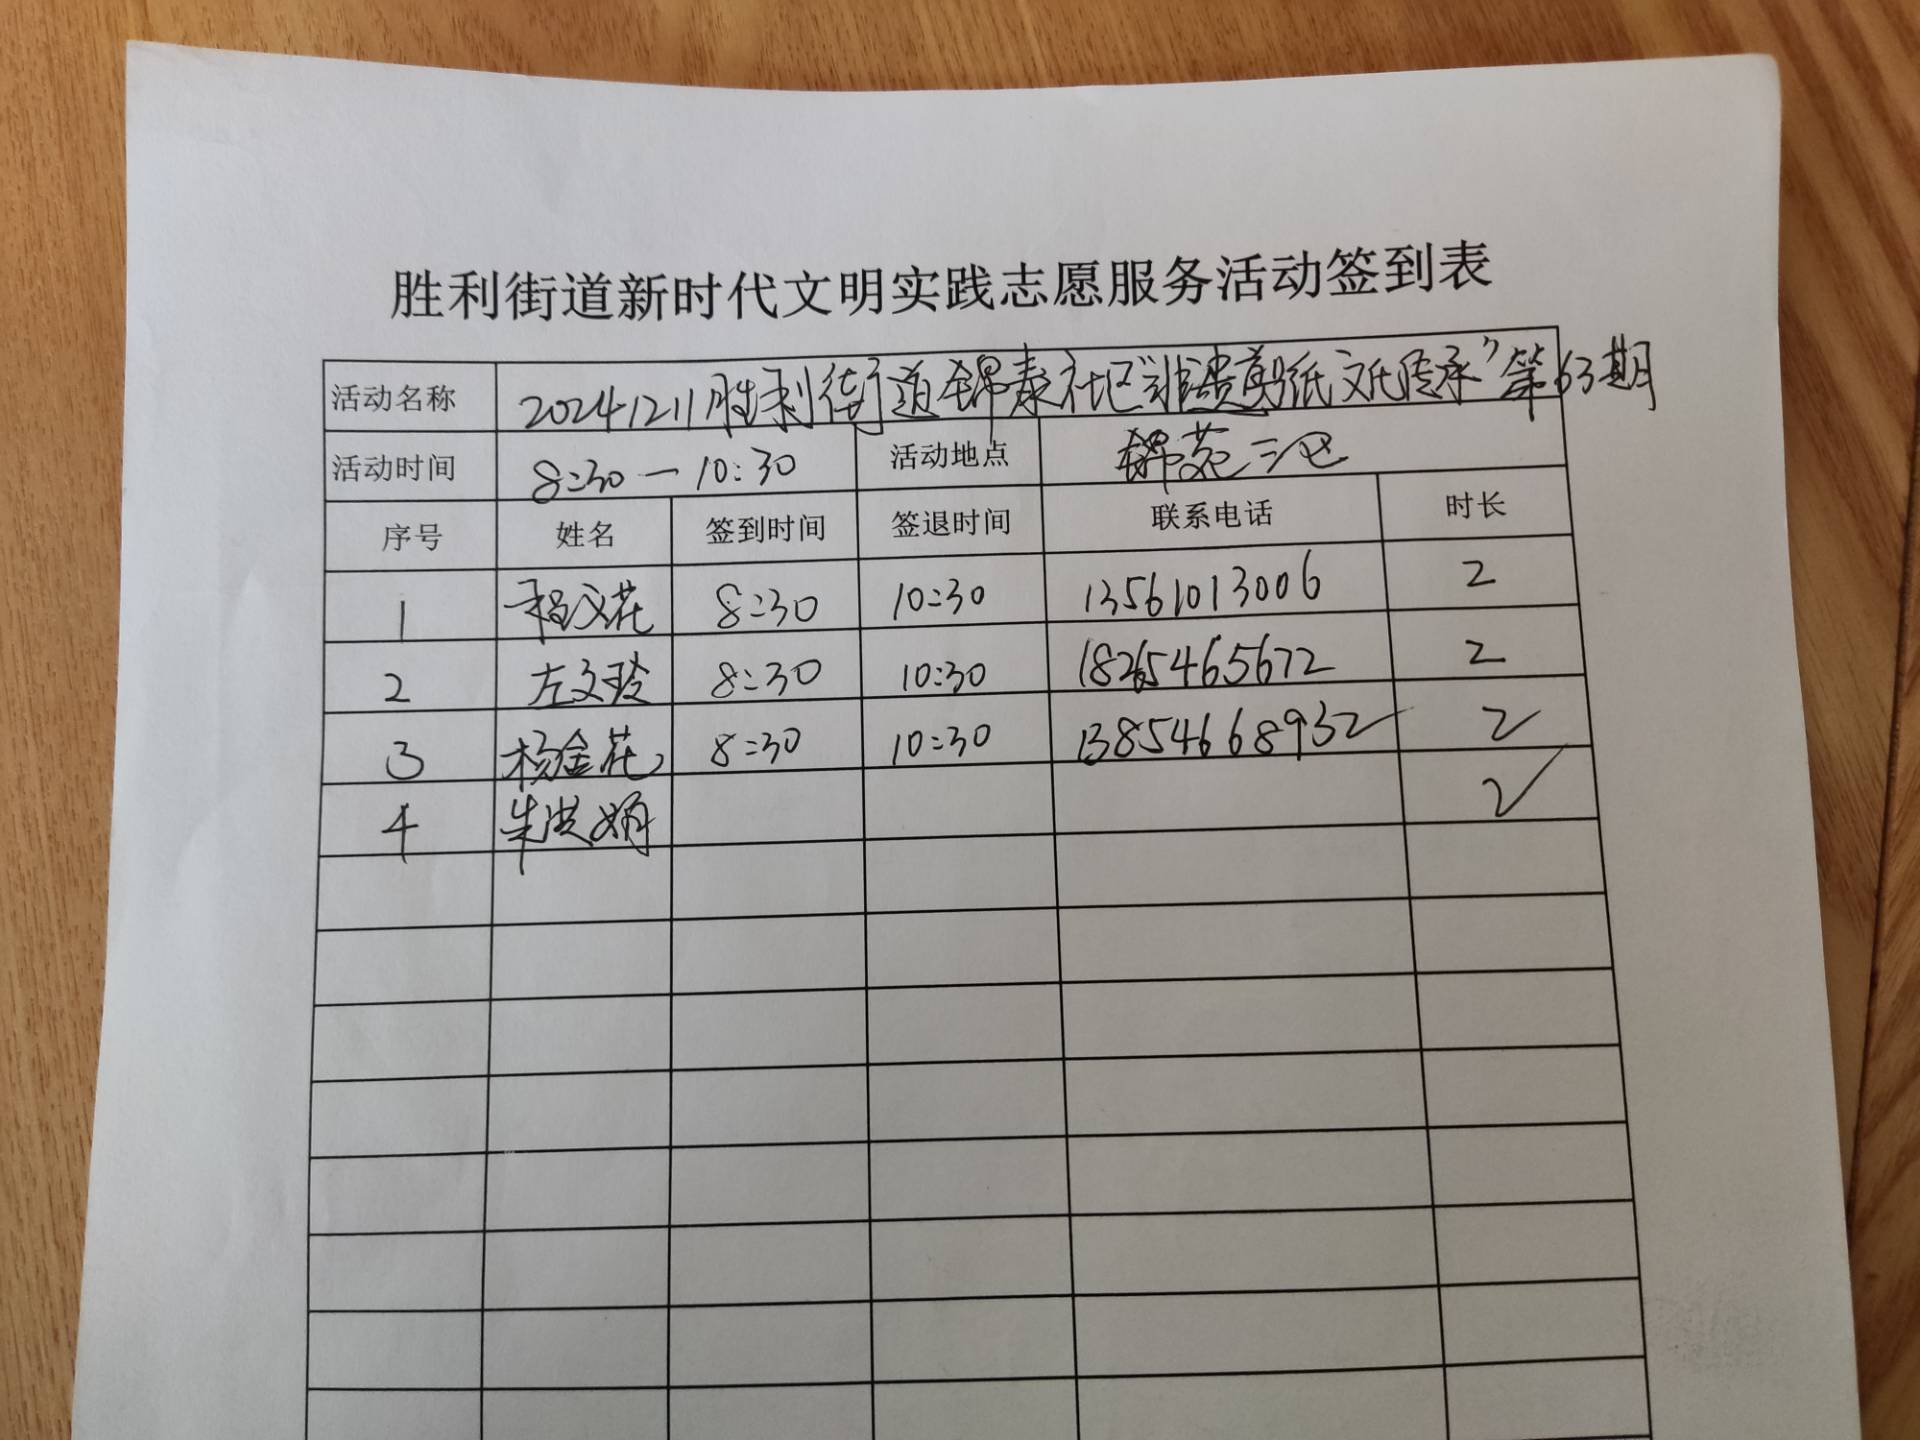 胜利街道新时代文明实践志愿服务活动签到表
活动名称 20241211胜利街道锦泰社区“非遗剪纸文化传承”第63期
活动时间 8:30一10:30 活动地点 锦苑三区
序号 姓名 签到时间 签退时间 联系电话 时长
1 程文花 8:30 10:30 13561013006 2
2 左文玲 8:30 10:30 18265465672 2
3 杨金花 8:30 10:30 13854668932 2
4 朱洪娟 2